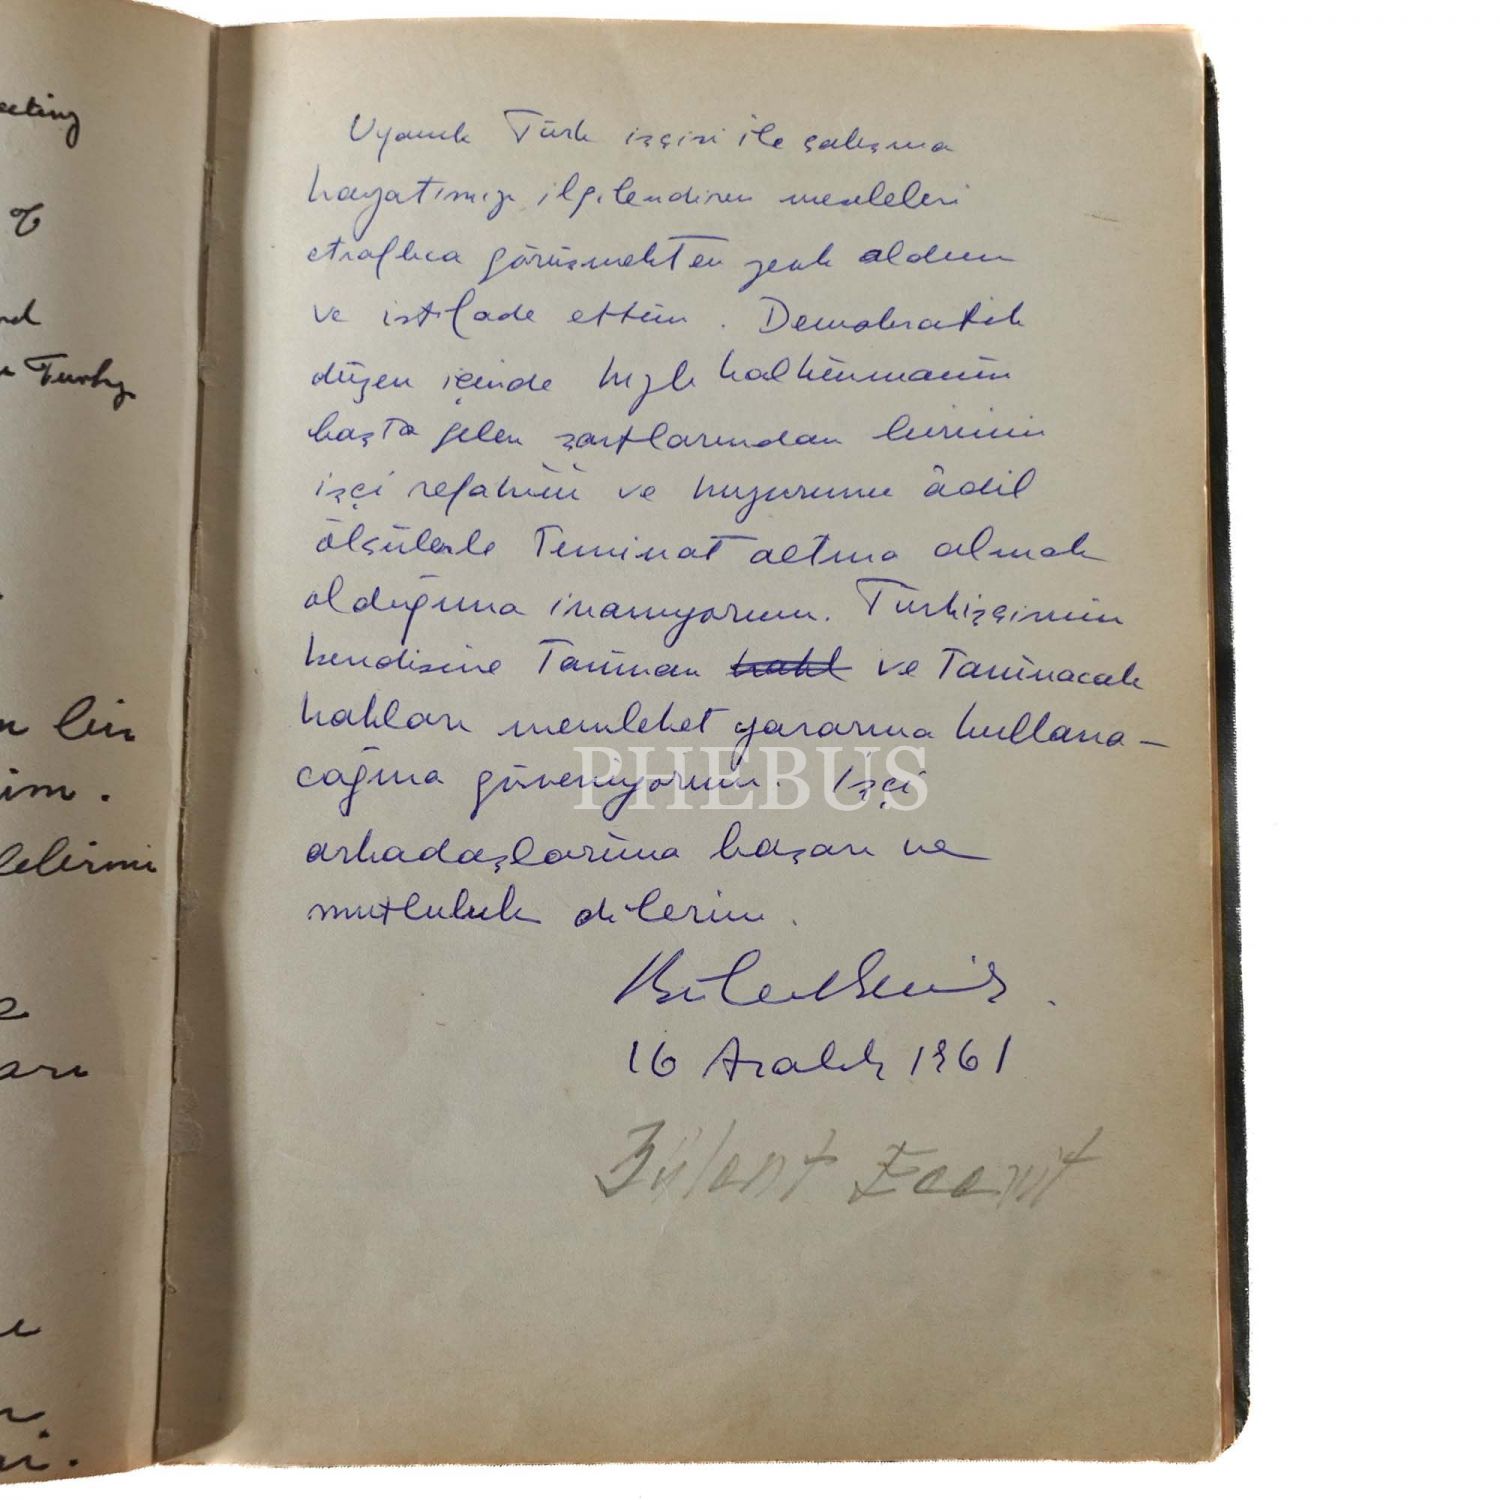 eeting
of
nd
Turkey
Uyanık Türk işçisi ile çalışma
hayatımızı ilgilendiren meseleleri
etraflıca görüşmekten zevk aldım
ve istifade ettim. Demokratik
düzen içinde hızlı kalkınmanın
başta gelen şartlarından birinin
işçi refahını ve huzurunu âdil
ölçülerle teminat altına almak
olduğuna inanıyorum. Türk işçisinin
kendisine tanınan hakl ve tanınacak
hakları memleket yararına kullana-
cağına güveniyorum. İşçi
arkadaşlarıma başarı ve
mutluluk dilerim.
Bülent Ecevit
16 Aralık 1961
Bülent Ecevit
PHEBUS